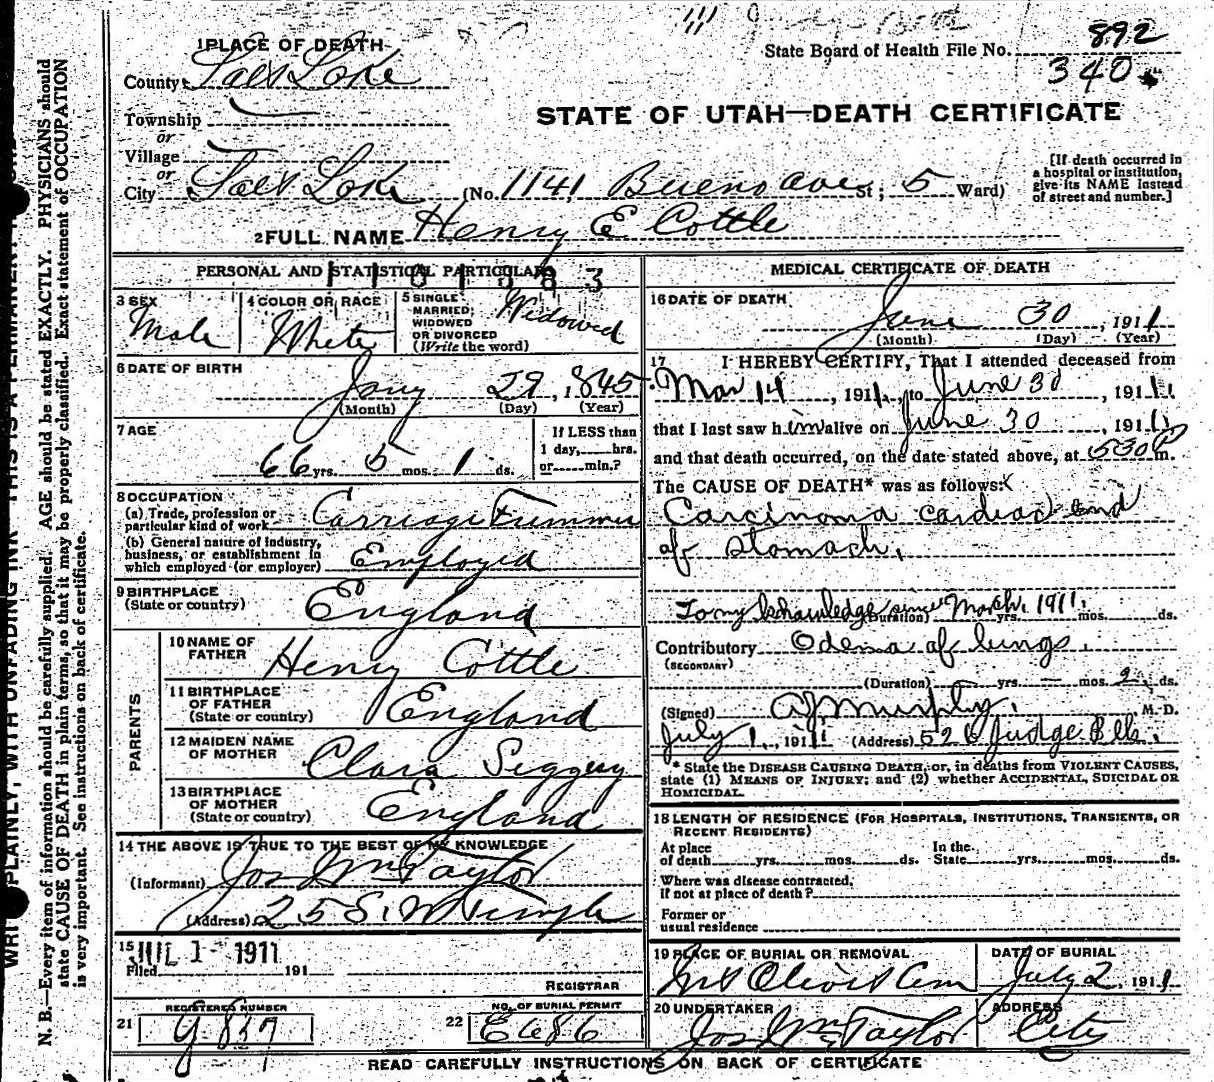 892
State Board of Health File No. 340
1 PLACE OF DEATH
County Salt Lake
STATE OF UTAH—DEATH CERTIFICATE
Township
or
Village
or
City Salt Lake (No. 1141 Bueno Ave St; 5 Ward)
[If death occurred in
a hospital or institution,
give its NAME instead
of street and number.]
2 FULL NAME Henry E Cottle
PERSONAL AND STATISTICAL PARTICULARS
3 SEX
Male
4 COLOR OR RACE
White
5 SINGLE
MARRIED,
WIDOWED
OR DIVORCED
(Write the word)
Widowed
6 DATE OF BIRTH
Jany 29, 1845
(Month) (Day) (Year)
7 AGE
66 yrs. 5 mos. 1 ds.
If LESS than
1 day, hrs.
or min.?
8 OCCUPATION
(a) Trade, profession or
particular kind of work Carriage Trimmer
(b) General nature of industry,
business, or establishment in
which employed (or employer) Employed
9 BIRTHPLACE
(State or country) England
PARENTS
10 NAME OF
FATHER Henry Cottle
11 BIRTHPLACE
OF FATHER
(State or country) England
12 MAIDEN NAME
OF MOTHER Clara
13 BIRTHPLACE
OF MOTHER
(State or country) England
14 THE ABOVE IS TRUE TO THE BEST OF MY KNOWLEDGE
(Informant) Jos Wm Taylor
(Address) 25 S. W Temple
15 JUL 1- 1911
Filed 191
REGISTRAR
REGISTERED NUMBER
21
NO. OF BURIAL PERMIT
22 E686
MEDICAL CERTIFICATE OF DEATH
16 DATE OF DEATH
June 30, 1911
(Month) (Day) (Year)
17 I HEREBY CERTIFY, That I attended deceased from
Mar 14, 1911, to June 30, 1911,
that I last saw him alive on June 30, 1911,
and that death occurred, on the date stated above, at 530 P m.
The CAUSE OF DEATH* was as follows:
Carcinoma cardiac end
of stomach.
To my knowledge since March. 1911.
(Duration) yrs. mos. ds.
Contributory Odema of lungs.
(SECONDARY)
(Duration) yrs. — mos. 2 ds.
(Signed) Murphy. M.D.
July 1, 1911 (Address) 526 Judge Bld.
* State the DISEASE CAUSING DEATH, or, in deaths from VIOLENT CAUSES,
state (1) MEANS OF INJURY; and (2) whether ACCIDENTAL, SUICIDAL OR
HOMICIDAL.
18 LENGTH OF RESIDENCE (FOR HOSPITALS, INSTITUTIONS, TRANSIENTS, OR
RECENT RESIDENTS)
At place
of death yrs. mos. ds.
In the
State yrs. mos. ds.
Where was disease contracted,
if not at place of death?
Former or
usual residence
19 PLACE OF BURIAL OR REMOVAL
Mt Olivet Cem
DATE OF BURIAL
July 2, 1911
20 UNDERTAKER
Jos Wm Taylor
ADDRESS
City
READ CAREFULLY INSTRUCTIONS ON BACK OF CERTIFICATE
PLAINLY, WITH UNFADING INK—THIS IS A PERMANENT
N. B.—Every item of information should be carefully supplied. AGE should be stated EXACTLY. PHYSICIANS should
state CAUSE OF DEATH in plain terms, so that it may be properly classified. Exact statement of OCCUPATION
is very important. See instructions on back of certificate.